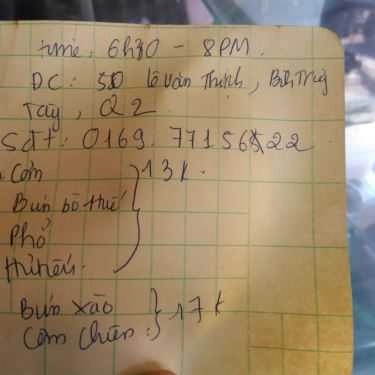 time, 6h30 - 8PM.
ĐC: 50 Lê Văn Thịnh, Bình Trưng
Tây, Q2
Sđt: 0169.7715622
Cơm } 13k.
Bún bò Huế
Phở
Hủ tiếu.
Bún xào } 17k
Cơm chiên.